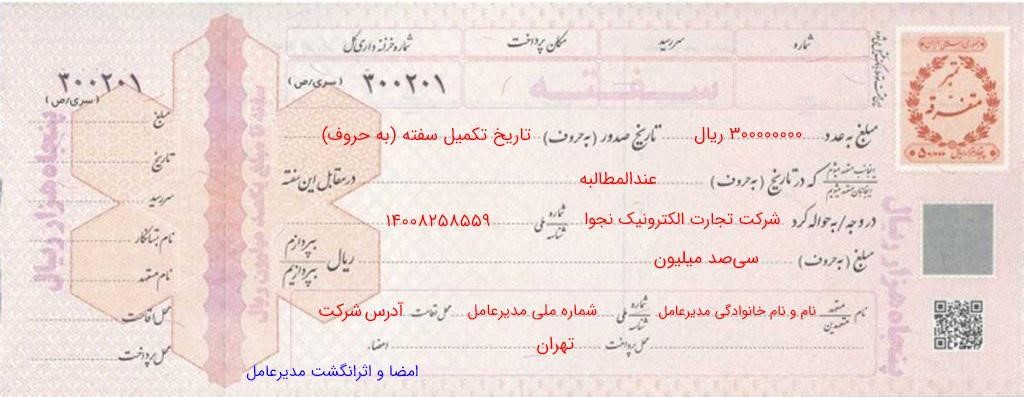 شماره
سررسید
مکان پرداخت
شماره خزانه داری کل
سفته
۳۰۰۲۰۱ (سری/ص)
۳۰۰۲۰۱
(سری/ص)
مبلغ به عدد ۳۰۰۰۰۰۰۰۰ ریال تاریخ صدور (به حروف) تاریخ تکمیل سفته (به حروف)
که در تاریخ (به حروف) عندالمطالبه در مقابل این سفته
در وجه/به حواله کرد شرکت تجارت الکترونیک نجوا شماره ملی شناسه ۱۴۰۰۸۲۵۸۵۵۹
مبلغ (به حروف) سی‌صد میلیون ریال بپردازم بپردازیم
نام متعهد متعهدین نام و نام خانوادگی مدیرعامل شماره ملی شناسه شماره ملی مدیرعامل محل اقامت آدرس شرکت
محل پرداخت تهران امضاء
امضا و اثرانگشت مدیرعامل
مبلغ
تاریخ
سررسید
نام بستانکار
نام متعهد
محل اقامت
محل پرداخت
پنجاه هزار ریال
سفته تا مبلغ یکصد میلیون ریال
پنجاه هزار ریال
جمهوری اسلامی ایران
تمبر
متفرقه